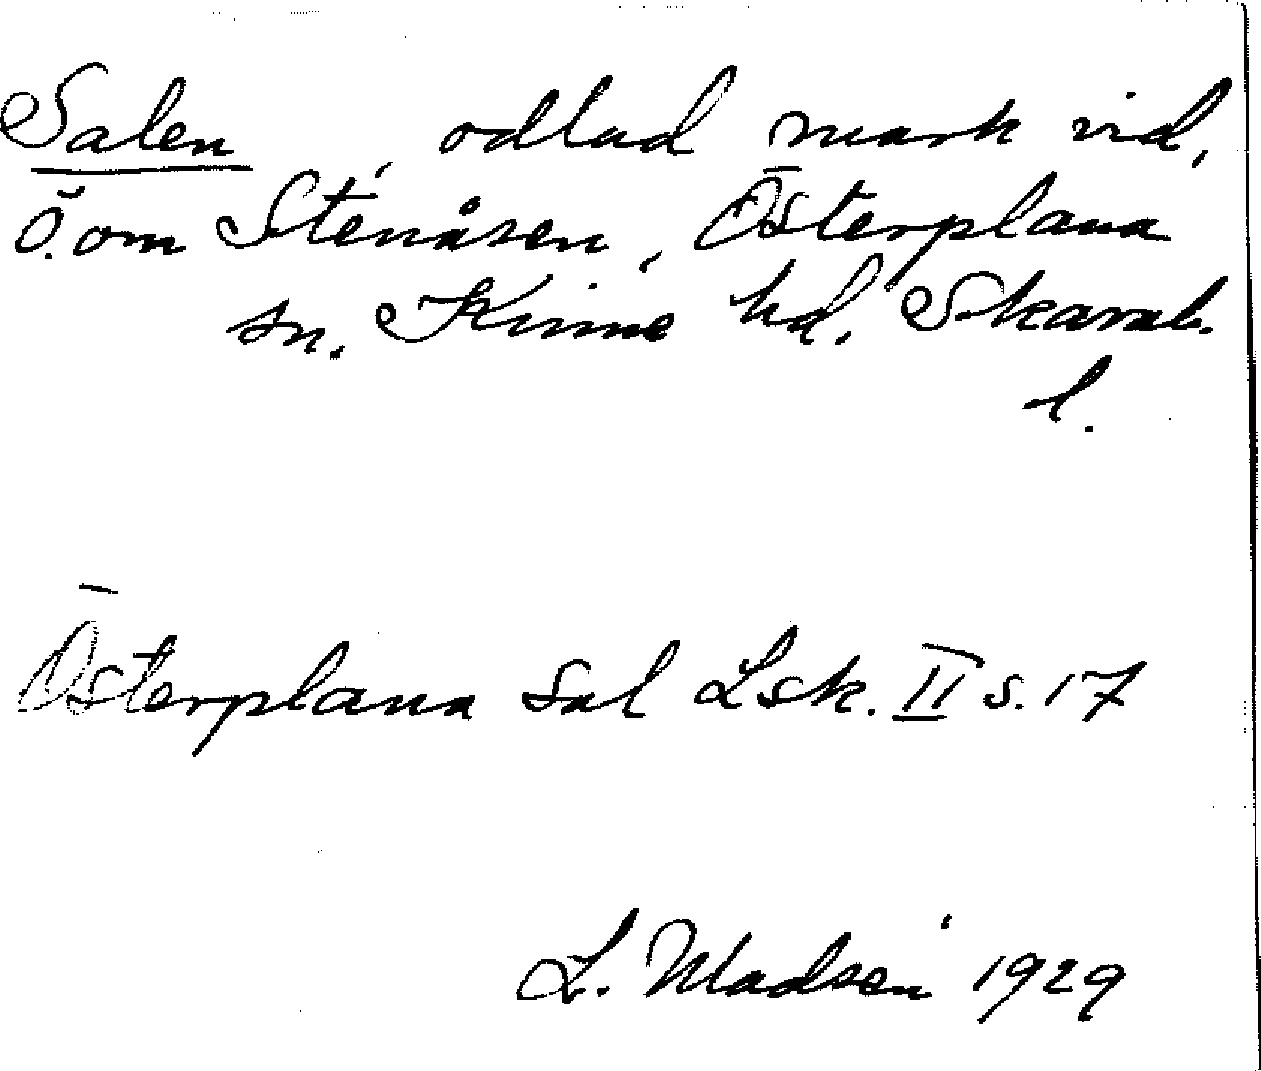 Salen, odlad mark vid,
ö. om Stenåsen, Österplana
sn. Kinne hd. Skarab.
l.
Österplana Sal Lsk. II s. 17
L. Madsén 1929